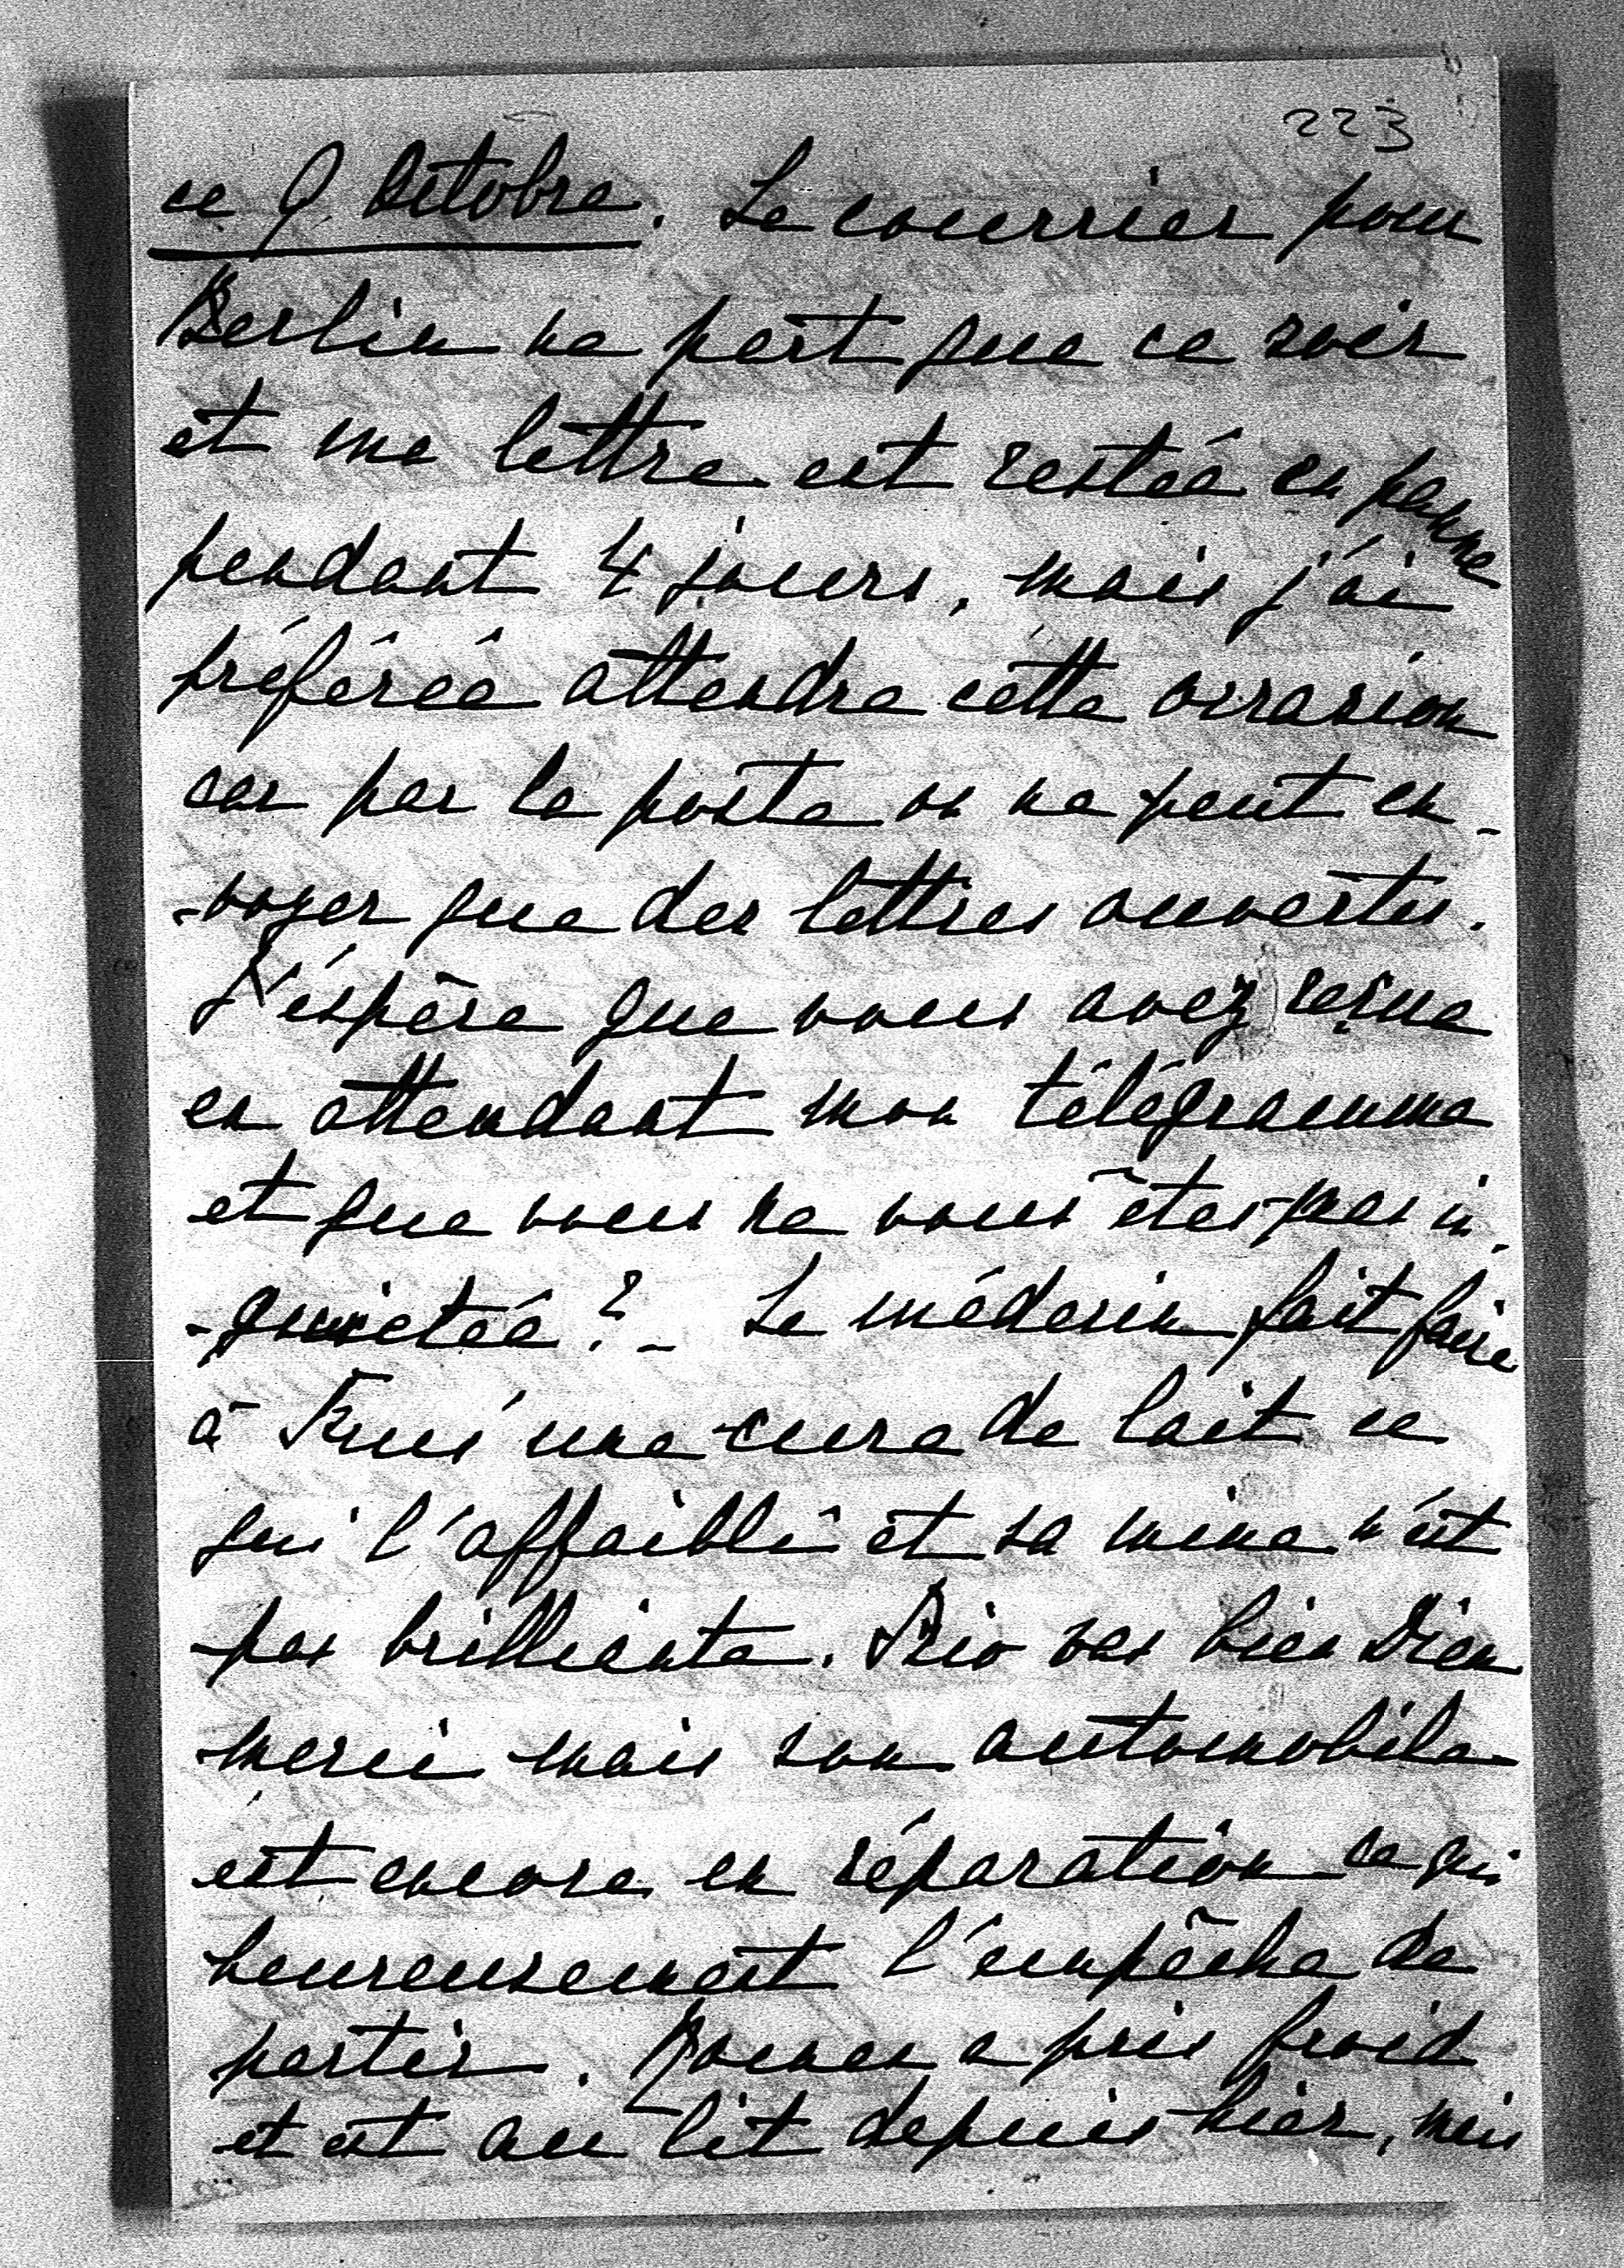 223
ce 9 Octobre. Le courrier pour
Berlin ne part que ce soir
et ma lettre est restée en panne
pendant 4 jours, mais j'ai
préférée attendre cette occasion
car par la poste on ne peut en-
-voyer que des lettres ouvertes.
J'espère que vous avez reçue
en attendant mon télégramme
et que vous ne vous êtes pas in-
-quietée? - Le médecin fait faire
à une cure de lait ce
qui l'affaibli et sa mine n'est
pas brilliante. vas bien Dieu
merci mais son automobile
est encore en réparation ce qui
heureusement l'empêche de
partir. a pris froid
et est au lit depuis hier, mais